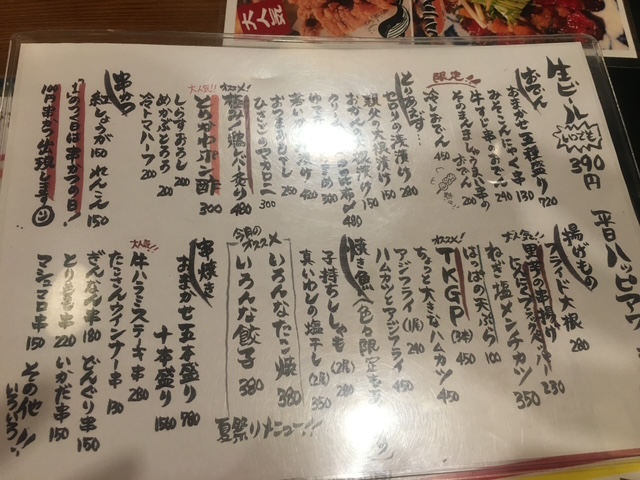 大人気
生ビール
いつでも
390円
平日ハッピアワ
おでん
おまかせ五種盛り 720
みそこんにゃく串 130
牛すじ串 240
そのまんましゅうまい串 200
限定!!
冷しおでん 450
とりあえず…
セロリの浅漬け 280
親父の大根漬け 150
480
オススメ!
極み鶏レバ炙り 480
ひさごりのマカロニ 300
大人気!!
とりかわポン酢 300
しらすおろし 200
めかぶとろろ 200
冷トマトハーフ 200
串かつ
紅しょうが 150 れんこん 150
1のつく日は串かつの日!
100円串かつ出現します
揚げもの
フライド大根 280
大人気!!
230
ねぎ塩メンチカツ 350
はっぱの天ぷら 100
オススメ!
TKGP(3本) 450
ちょっと大きなハムカツ 450
アジフライ(1尾) 240
ハムカツとアジフライ 450
焼き魚
子持ちししゃも(2尾) 280
真いわしの塩干し(2尾) 350
今月のオススメ
いろんなたこ焼 380
いろんな餃子 380
夏祭りメニュー!!
串焼き
おまかせ五本盛り 780
十本盛り 1560
大人気!!
牛ハラミステーキ串 280
たこさんウインナー串 130
ぎんなん串 180 どんぐり串 150
とりもも串 220 いかだ串 150
マシュマロ串 150
その他!!
いろいろ